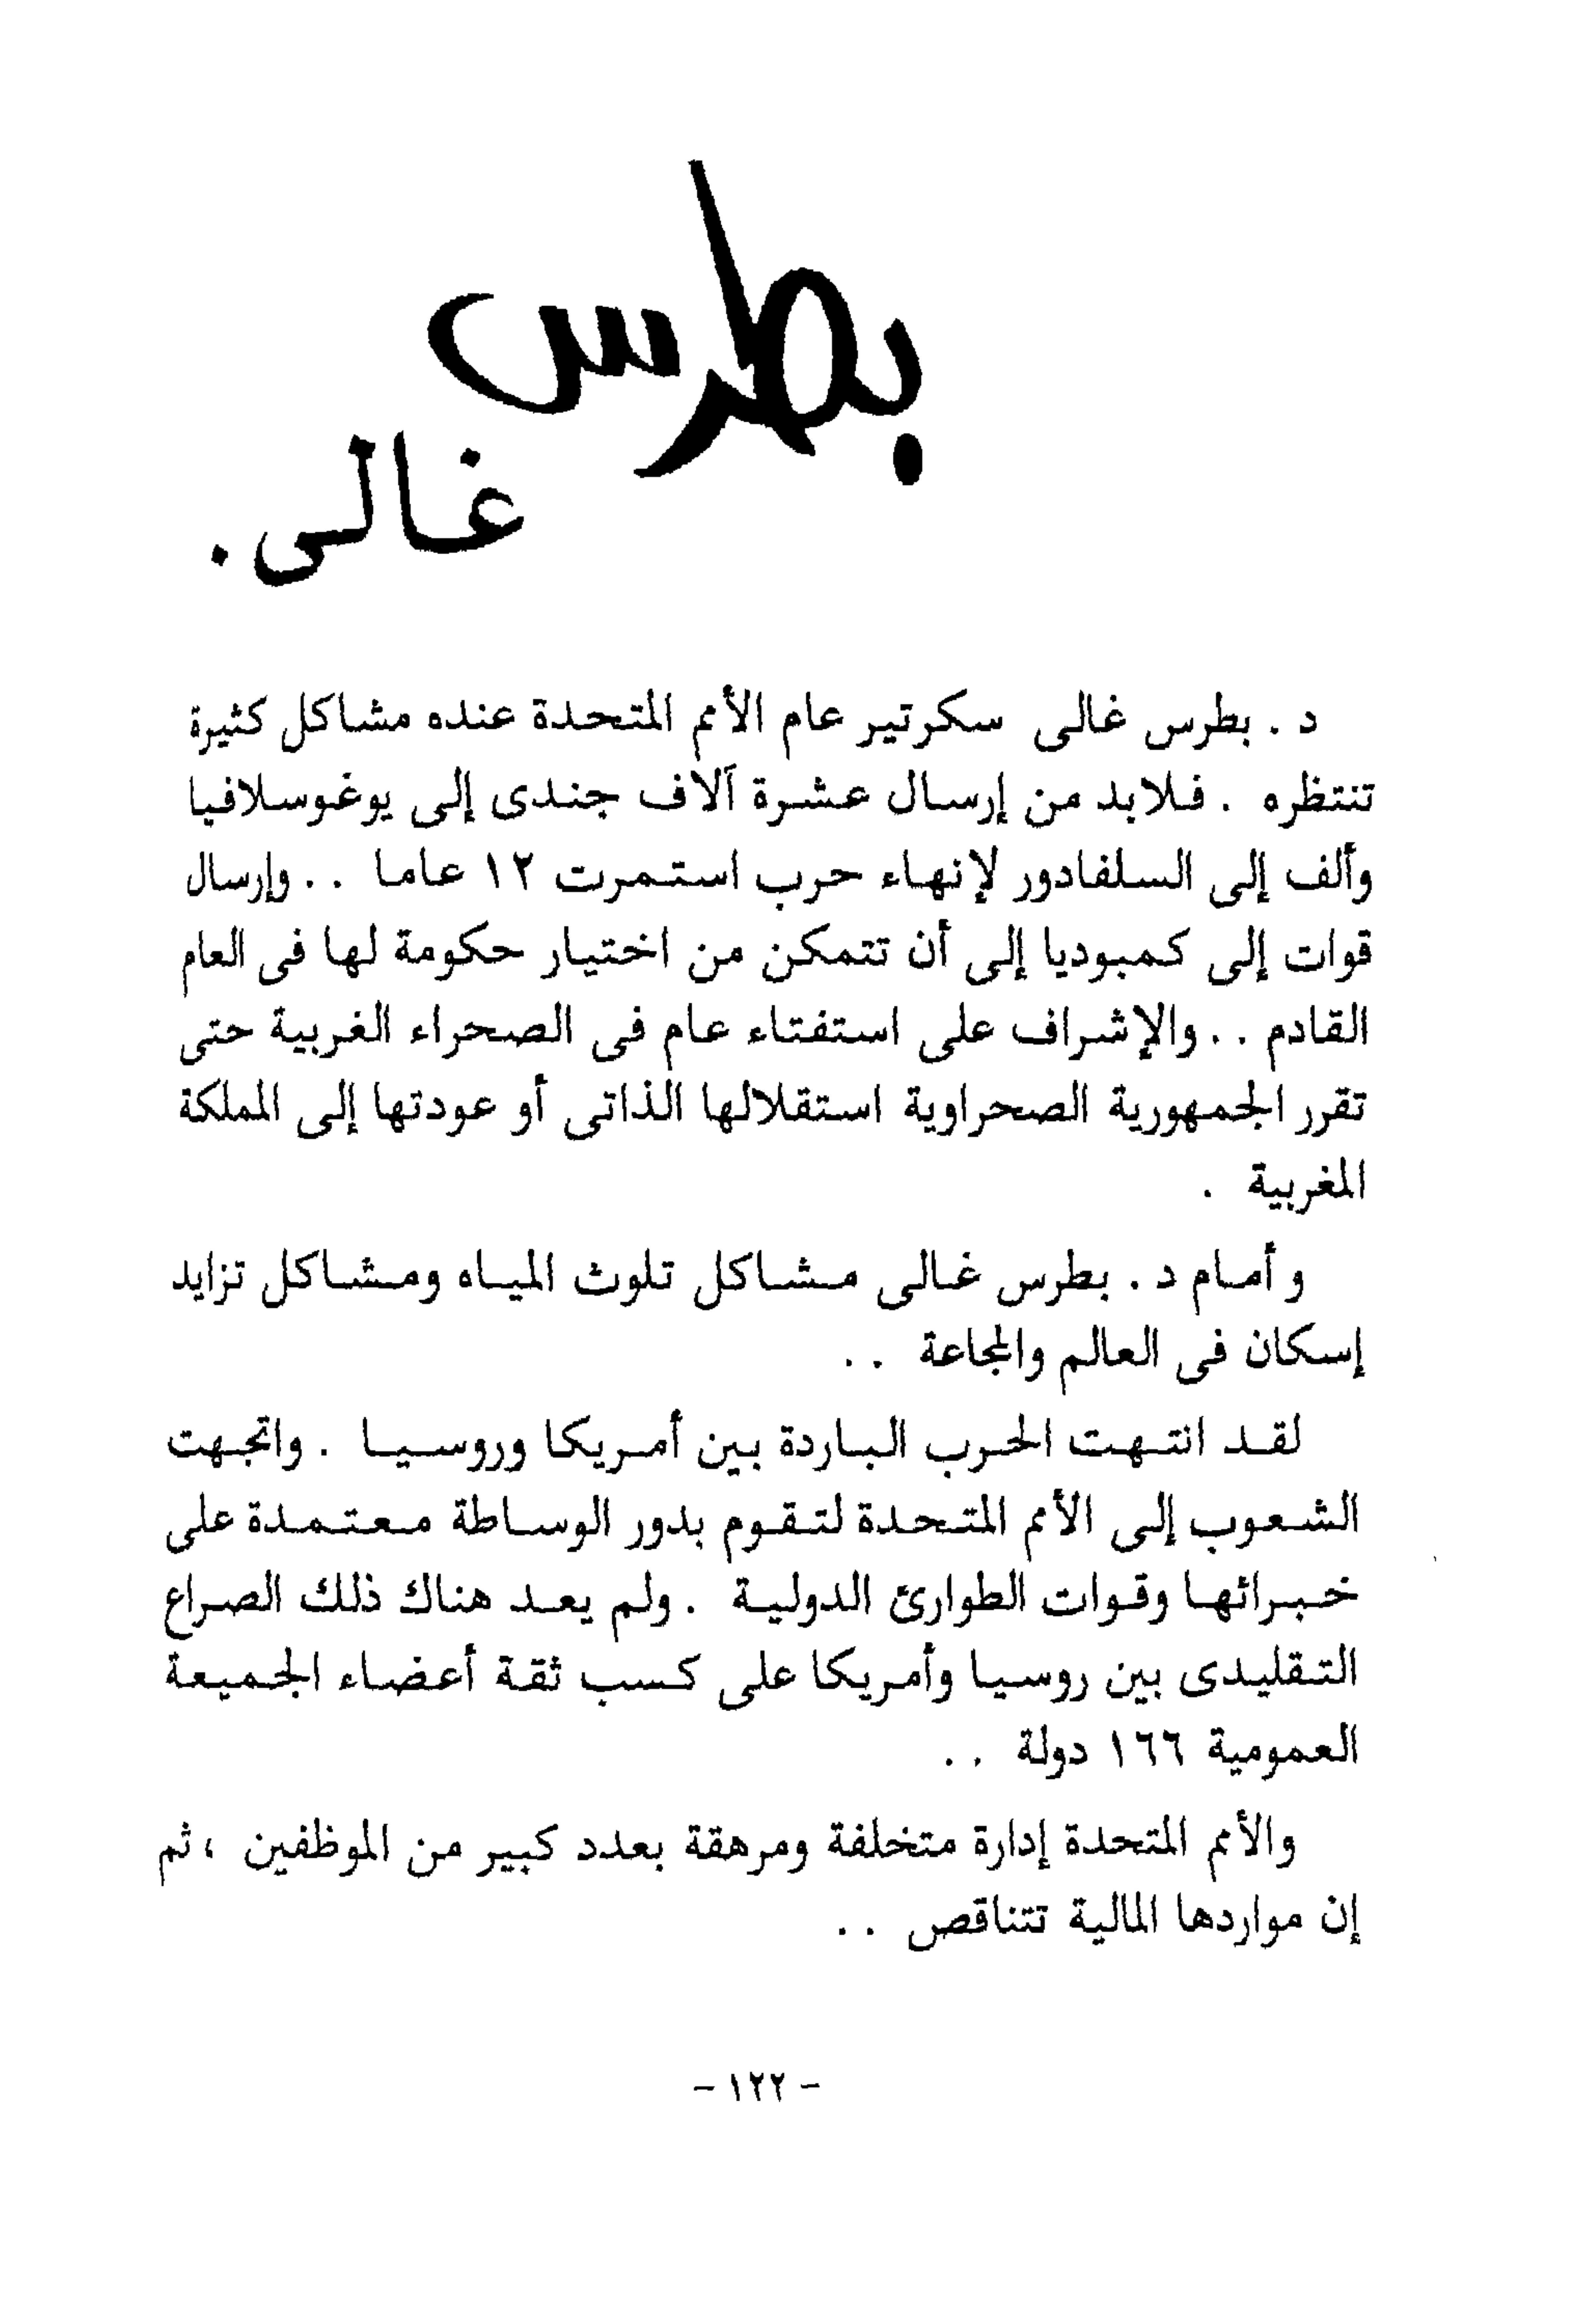 بطرس
غالى .
د . بطرس غالى سكرتير عام الأمم المتحدة عنده مشاكل كثيرة
تنتظره . فلابد من إرسال عشرة آلاف جندى إلى يوغوسلافيا
وألف إلى السلفادور لإنهاء حرب استمرت ١٢ عاما . . وإرسال
قوات إلى كمبوديا إلى أن تتمكن من اختيار حكومة لها فى العام
القادم . . والإشراف على استفتاء عام فى الصحراء الغربية حتى
تقرر الجمهورية الصحراوية استقلالها الذاتى أو عودتها إلى المملكة
المغربية .
و أمام د . بطرس غالى مشاكل تلوث المياه ومشاكل تزايد
إسكان فى العالم والمجاعة . .
لقد انتهت الحرب الباردة بين أمريكا وروسيا . واتجهت
الشعوب إلى الأمم المتحدة لتقوم بدور الوساطة معتمدة على
خبرائها وقوات الطوارئ الدولية . ولم يعد هناك ذلك الصراع
التقليدى بين روسيا وأمريكا على كسب ثقة أعضاء الجميعة
العمومية ١٦٦ دولة . .
والأمم المتحدة إدارة متخلفة ومرهقة بعدد كبير من الموظفين ، ثم
إن مواردها المالية تتناقص . .
- ١٢٢ -